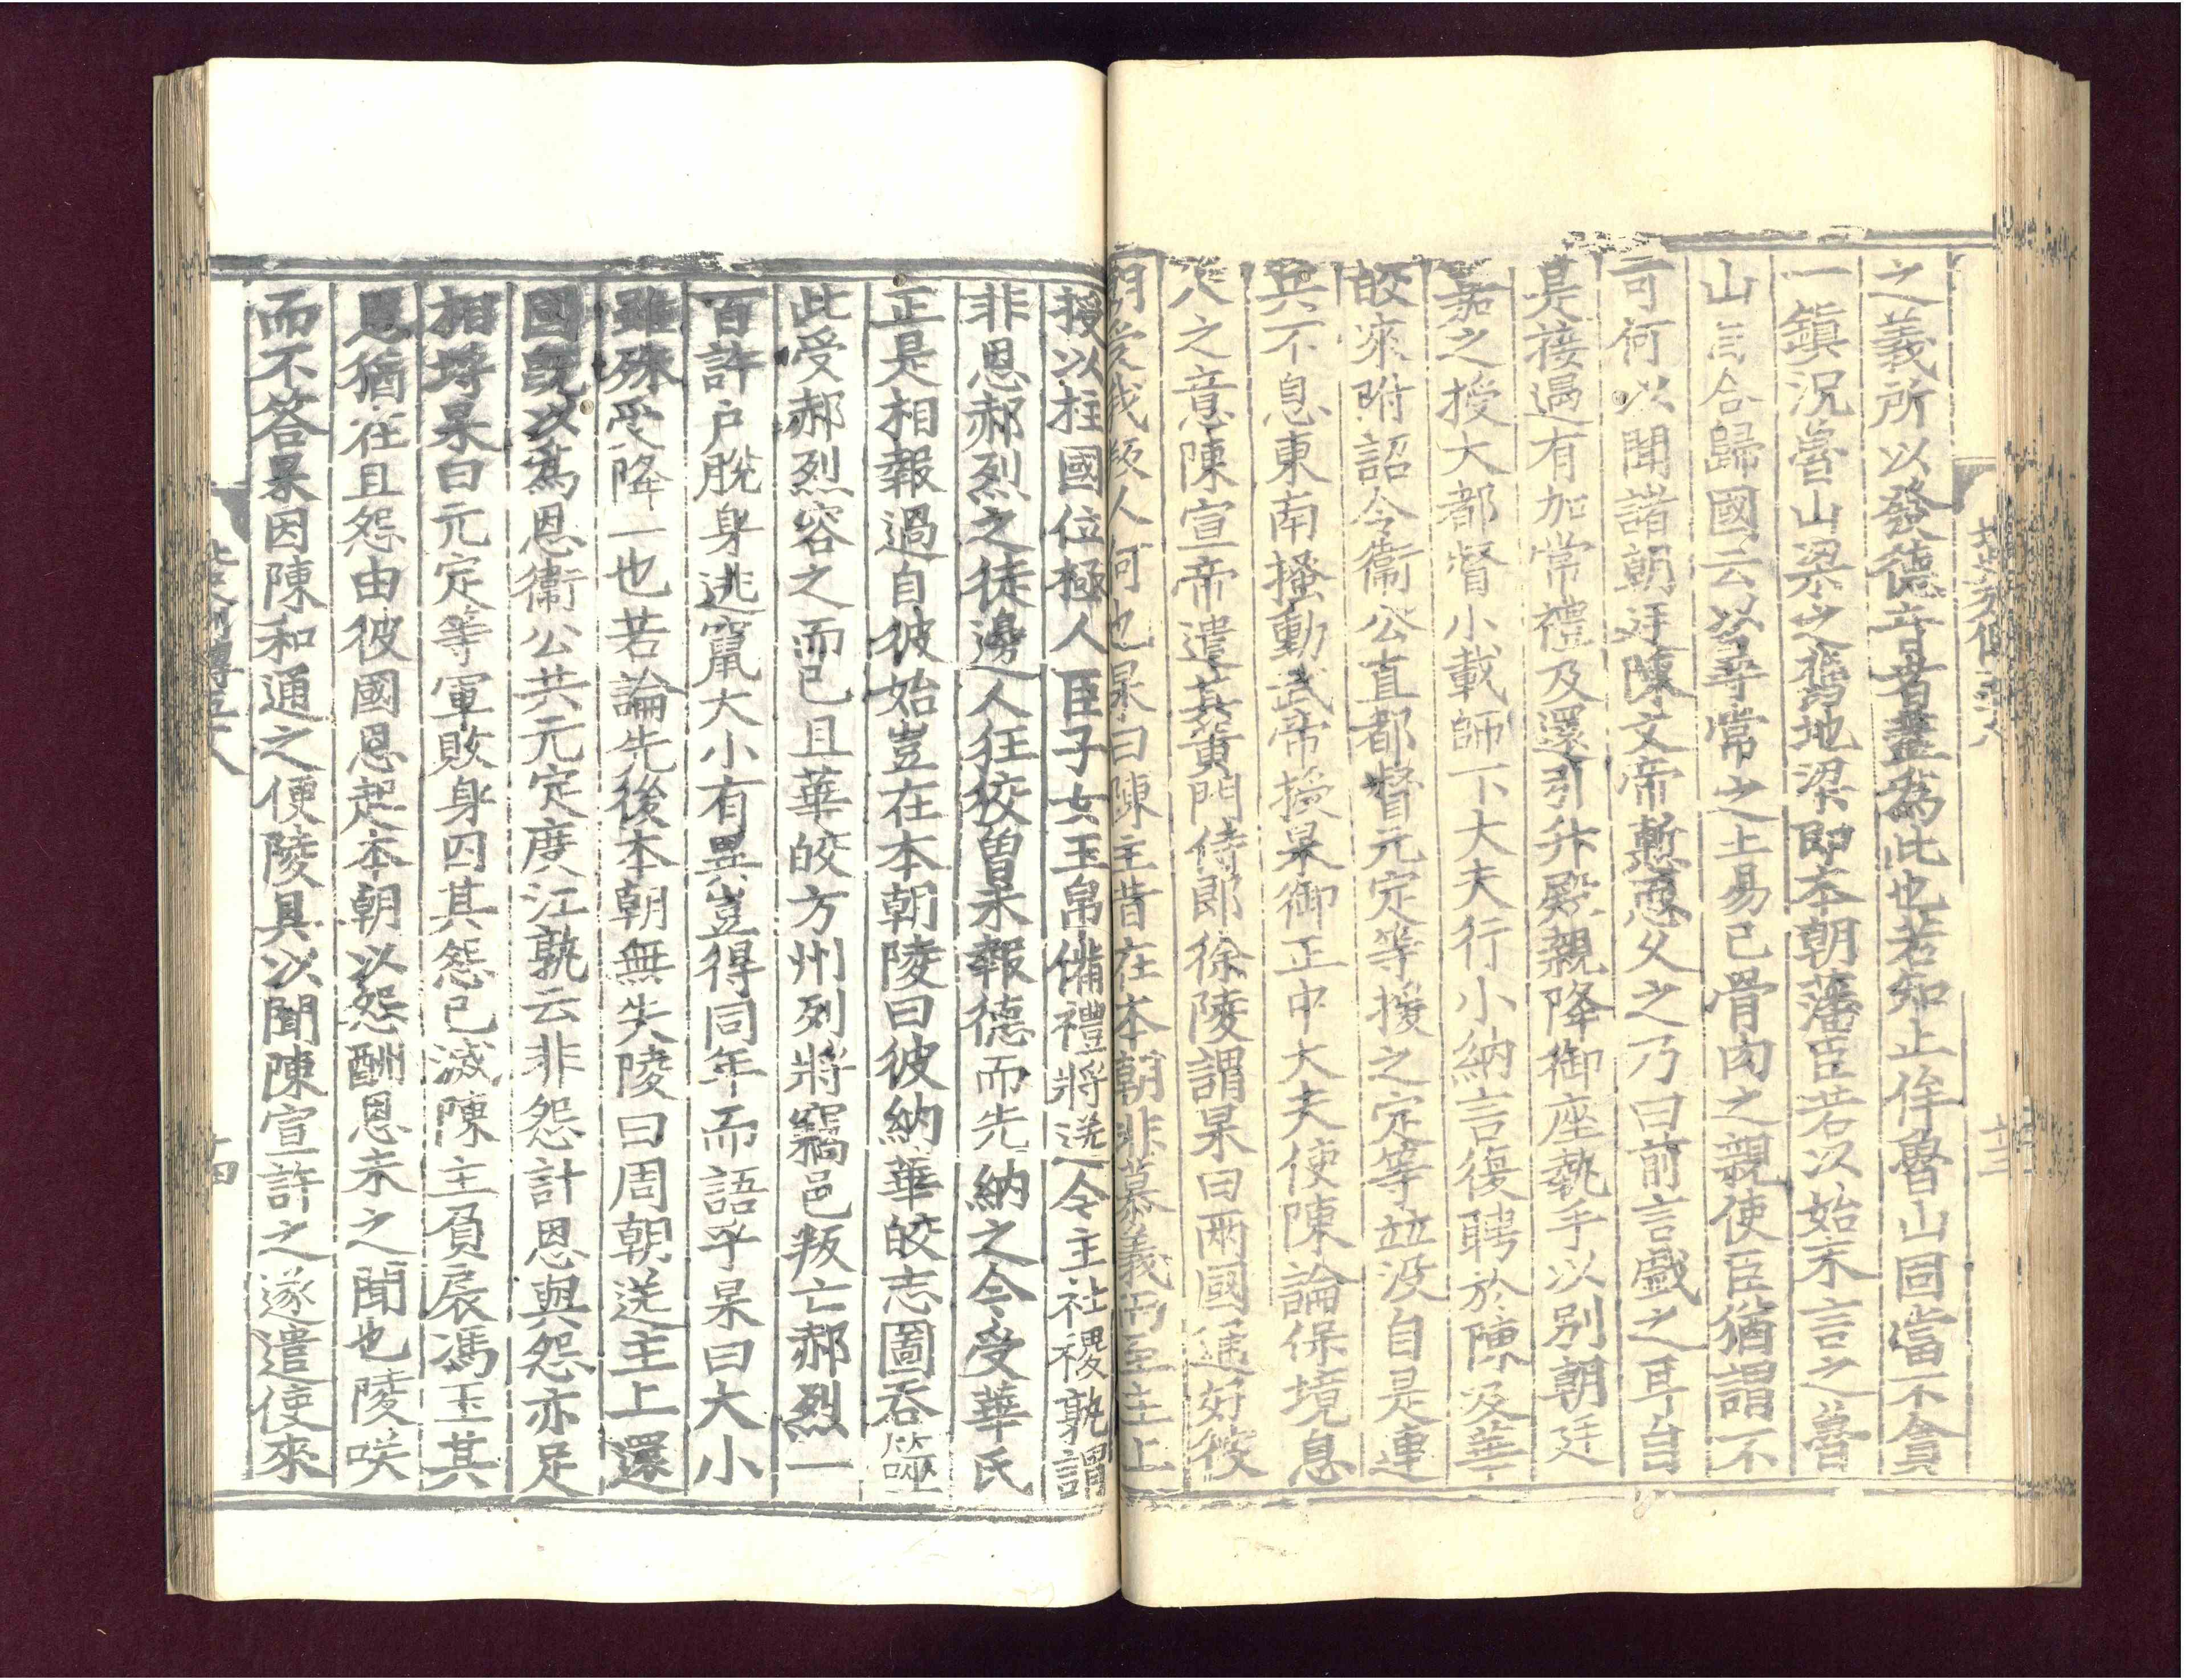 之義所以發德音者盡為此也若知止侔魯山固當不貪
一鎮況魯山梁之舊地梁即本朝藩臣若以始末言之魯
山自合歸國云以尋常之土易己骨肉之親使臣猶謂不
可何以聞諸朝廷陳文帝慙恧久之乃曰前言戲之耳自
是接遇有加常禮及還引升殿親降御座執手以別朝廷
嘉之授大都督小載師下大夫行小納言復聘於陳及華
皎來附詔令衞公直都督元定等援之定等並没自是連
兵不息東南搔動武帝授杲御正中大夫使陳論保境息
人之意陳宣帝遣其黄門侍郎徐陵謂杲曰兩國通好彼
朝受我叛人何也杲曰陳主昔在本朝非慕義而至主上
授以柱國位極人臣子女玉帛備禮將送今主社稷孰謂
非恩郝烈之徒邊人狂狡曾未報德而先納之今受華氏
正是相報過自彼始豈在本朝陵曰彼納華皎志圖吞噬
此受郝烈容之而已且華皎方州列將竊邑叛亡郝烈一
百許户脫身逃竄大小有異豈得同年而語乎杲曰大小
雖殊受降一也若論先後本朝無失陵曰周朝送主上還
國既以為恩衞公共元定度江孰云非怨計恩與怨亦足
相埒杲曰元定等軍敗身囚其怨已滅陳主負扆馮玉其
恩猶在且怨由彼國恩起本朝以怨酬恩未之聞也陵咲
而不答杲因陳和通之便陵具以聞陳宣許之遂遣使來
十四